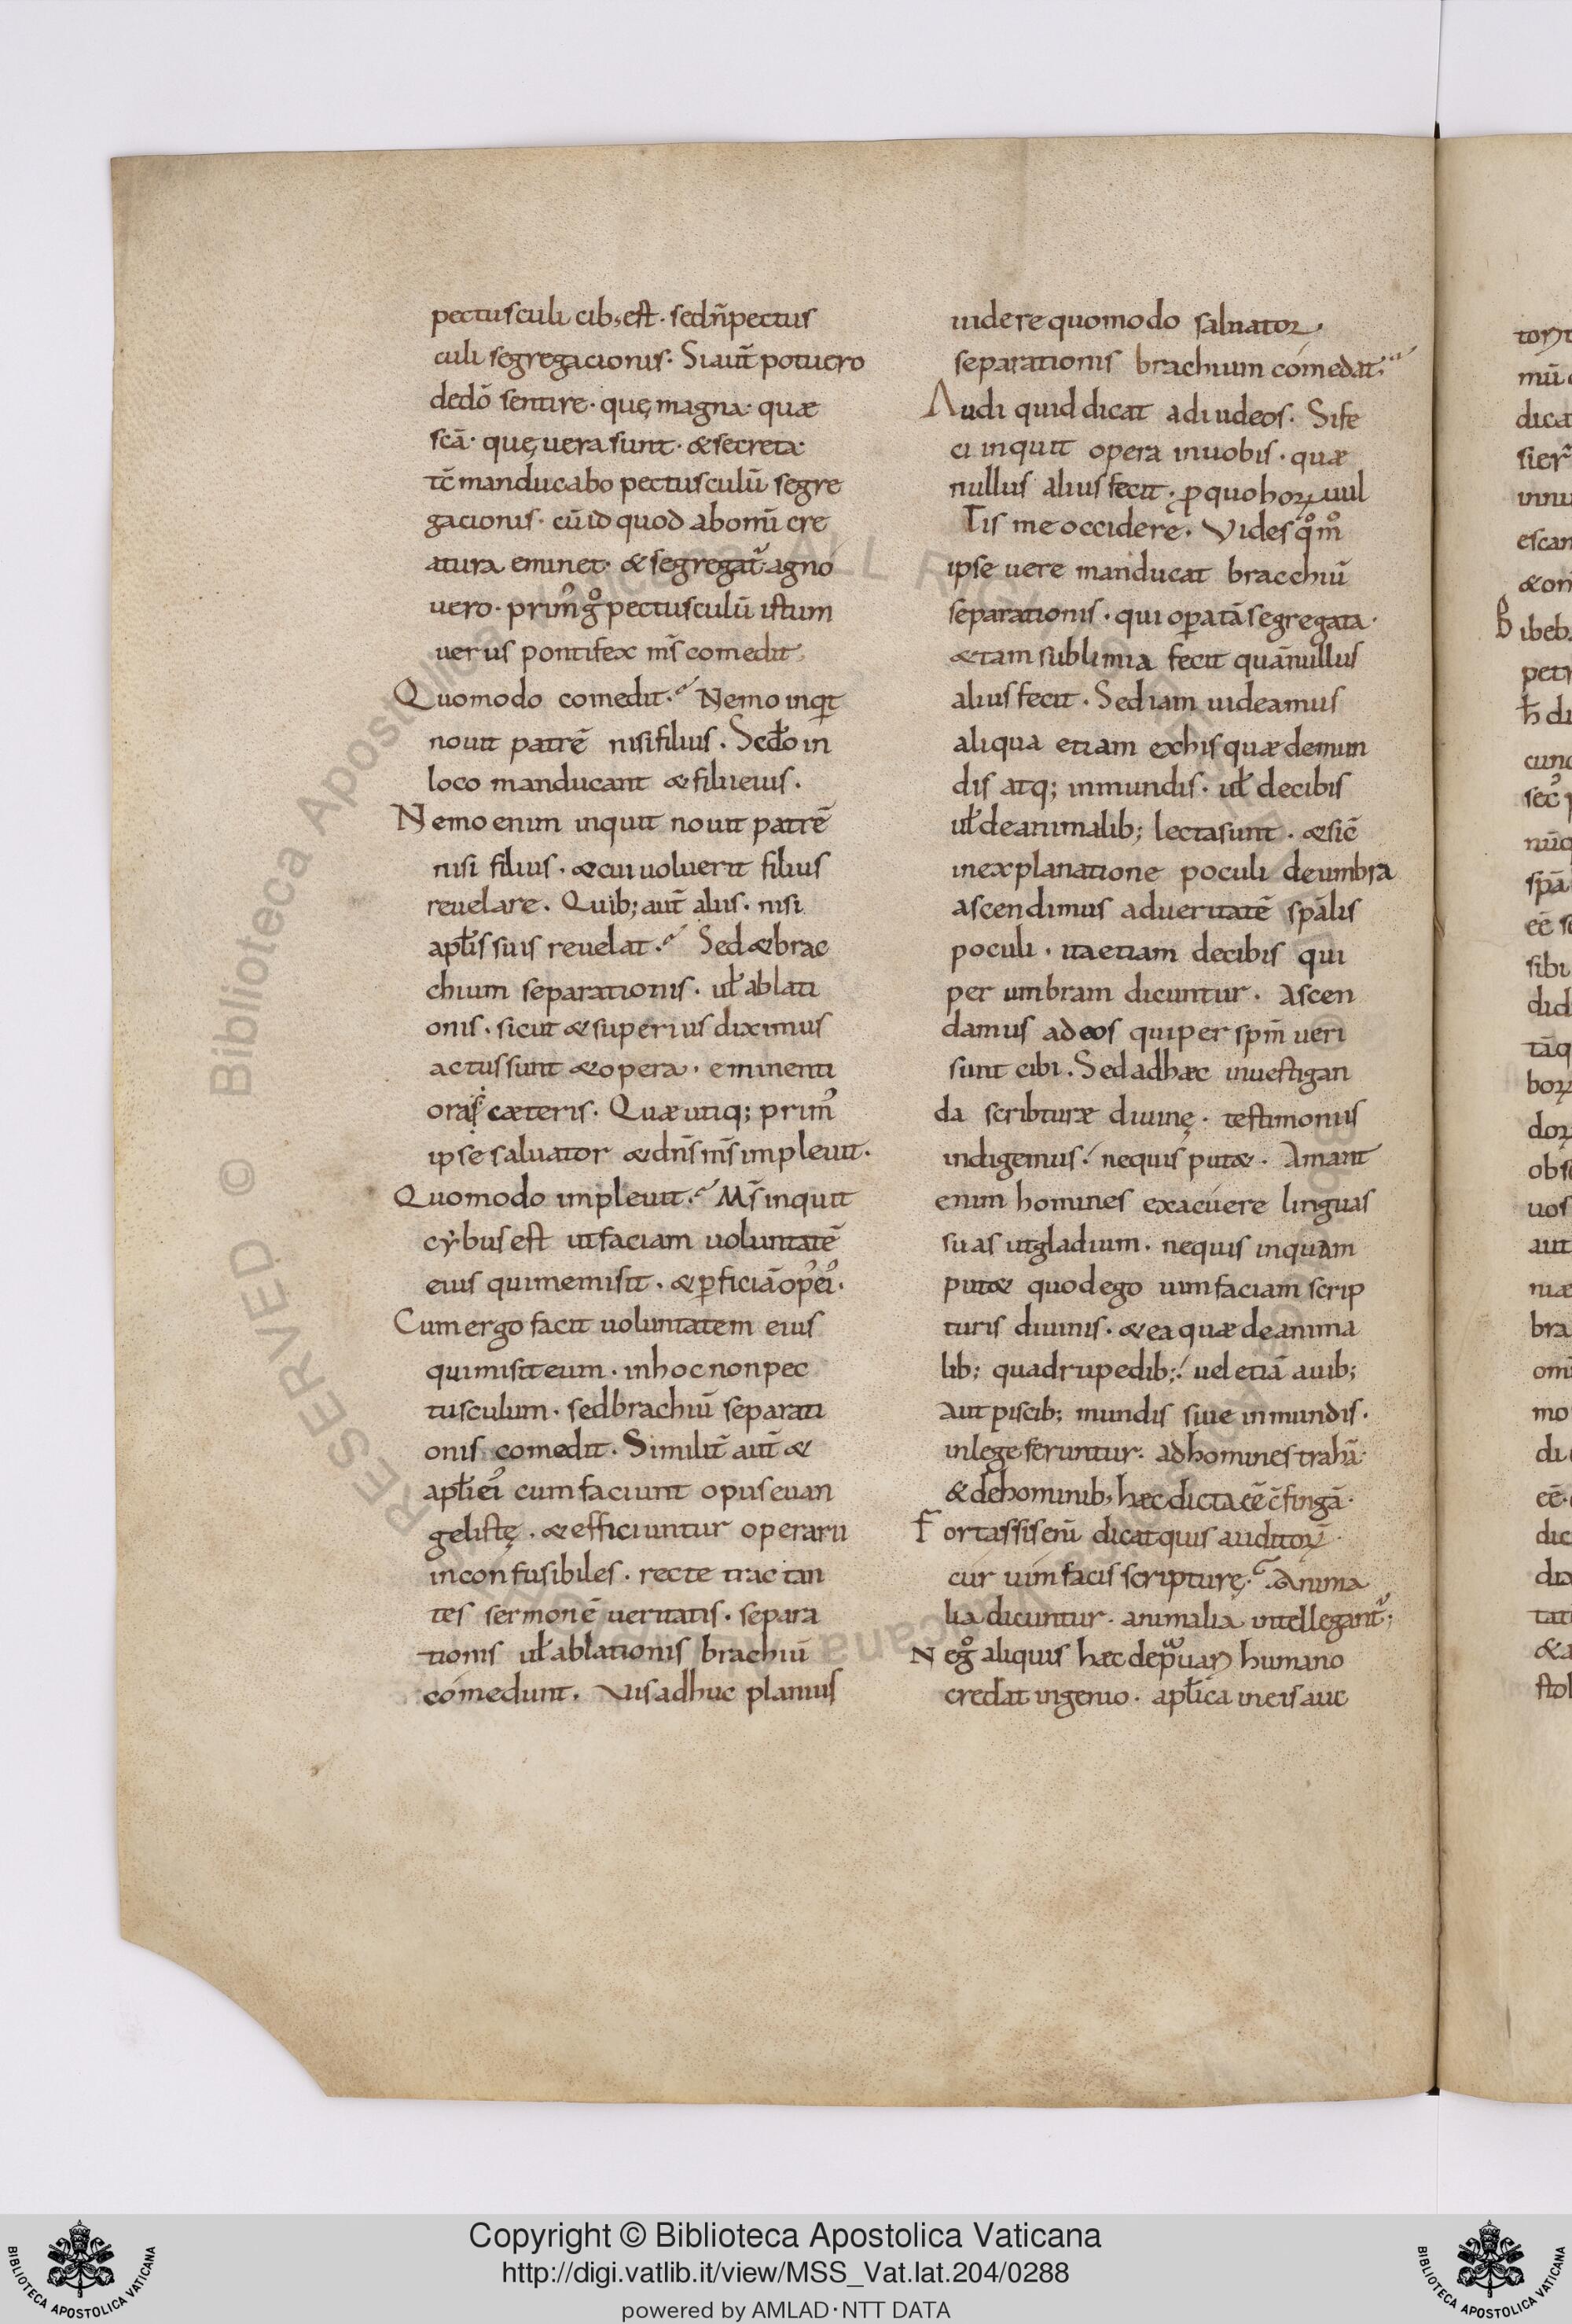 pectusculi cib; est · sed n̄ pectus
culi segregacionis · Si aut̄ potuero
de dō sentire · quę magna · quæ
scā · quę uera sunt · & secreta ·
tc̄ manducabo pectusculū segre
gacionis · cū id quod ab omī cre
atura eminet · & segregat᷑ · agno
uero · prim᾽ gͦ pectusculū istum
uerus pontifex m̄s comedit
Quomodo comedit · Nemo inqͥt
nouit patrē nisi filius · Scd̄o in
loco manducant & filii eius ·
Nemo enim inquit nouit patrē
nisi filius · & cui uoluerit filius
reuelare · Quib; aut̄ aliis · nisi
apłis suis reuelat · Sed & brac
chium separationis · uł ablati
onis · sicut & superius diximus
actus sunt & opera · eminenti
ora p̄ cæteris · Quæ utiq; prim᾽
ipse saluator & dn̄s m̄s impleuit ·
Quomodo impleuit · M̄s inquit
cẏbus est ut faciam uoluntatē
eius qui me misit · & ꝑficiā op᾽ ei᾽ ·
Cum ergo facit uoluntatem eius
qui misit eum · in hoc non pec
tusculum · sed brachiū separati
onis comedit · Similit̄ aut̄ &
apłi ei᾽ cum faciunt opus euan
gelistę · & efficiuntur operarii
inconfusibiles · recte tractan
tes sermonē ueritatis · separa
tionis uł ablationis brachiū
comedunt · Vis adhuc planius
uidere quomodo saluator ·
separationis brachium comedat ·
Audi quid dicat ad iudeos · Si fe
ci inquit opera in uobis · quæ
nullus alius fecit · ꝓ quo hoꝝ uul
Tis me occidere · Vides qͦmͦ
ipse uere manducat bracchiū
separationis · qui oꝑa tā segregata ·
& tam sublimia fecit quā nullus
alius fecit · Sed iam uideamus
aliqua etiam ex his quæ de mun
dis atq; inmundis · uł de cibis
uł de animalib; lecta sunt · & sic̄
in explanatione poculi de umbra
ascendimus ad ueritatē spālis
poculi · ita etiam de cibis qui
per umbram dicuntur · Ascen
damus ad eos qui per spm̄ ueri
sunt cibi · Sed ad hæc inuestigan
da scribturæ diuinę · testimoniis
indigemus · ne quis put& · Amant
enim homines exacuere linguas
suas ut gladium · ne quis inquam
put& quod ego uim faciam scrip
turis diuinis · & ea quæ de anima
lib; quadrupedib; · uel etiā auib;
aut piscib; mundis siue inmundis ·
in lege feruntur · ad homines trahā ·
& de hominib; hæc dicta ēē c̄fingā ·
Fortassis eni̅ dicat quis auditoꝝ
cur uim facis scripturę · Anima
lia dicuntur · animalia intellegant᷑;
N egͦ aliquis hæc deprauari humano
credat ingenio · apłica in eis auc
Copyright © Biblioteca Apostolica Vaticana
http://digi.vatlib.it/view/MSS_Vat.lat.204/0288
powered by AMLAD·NTT DATA